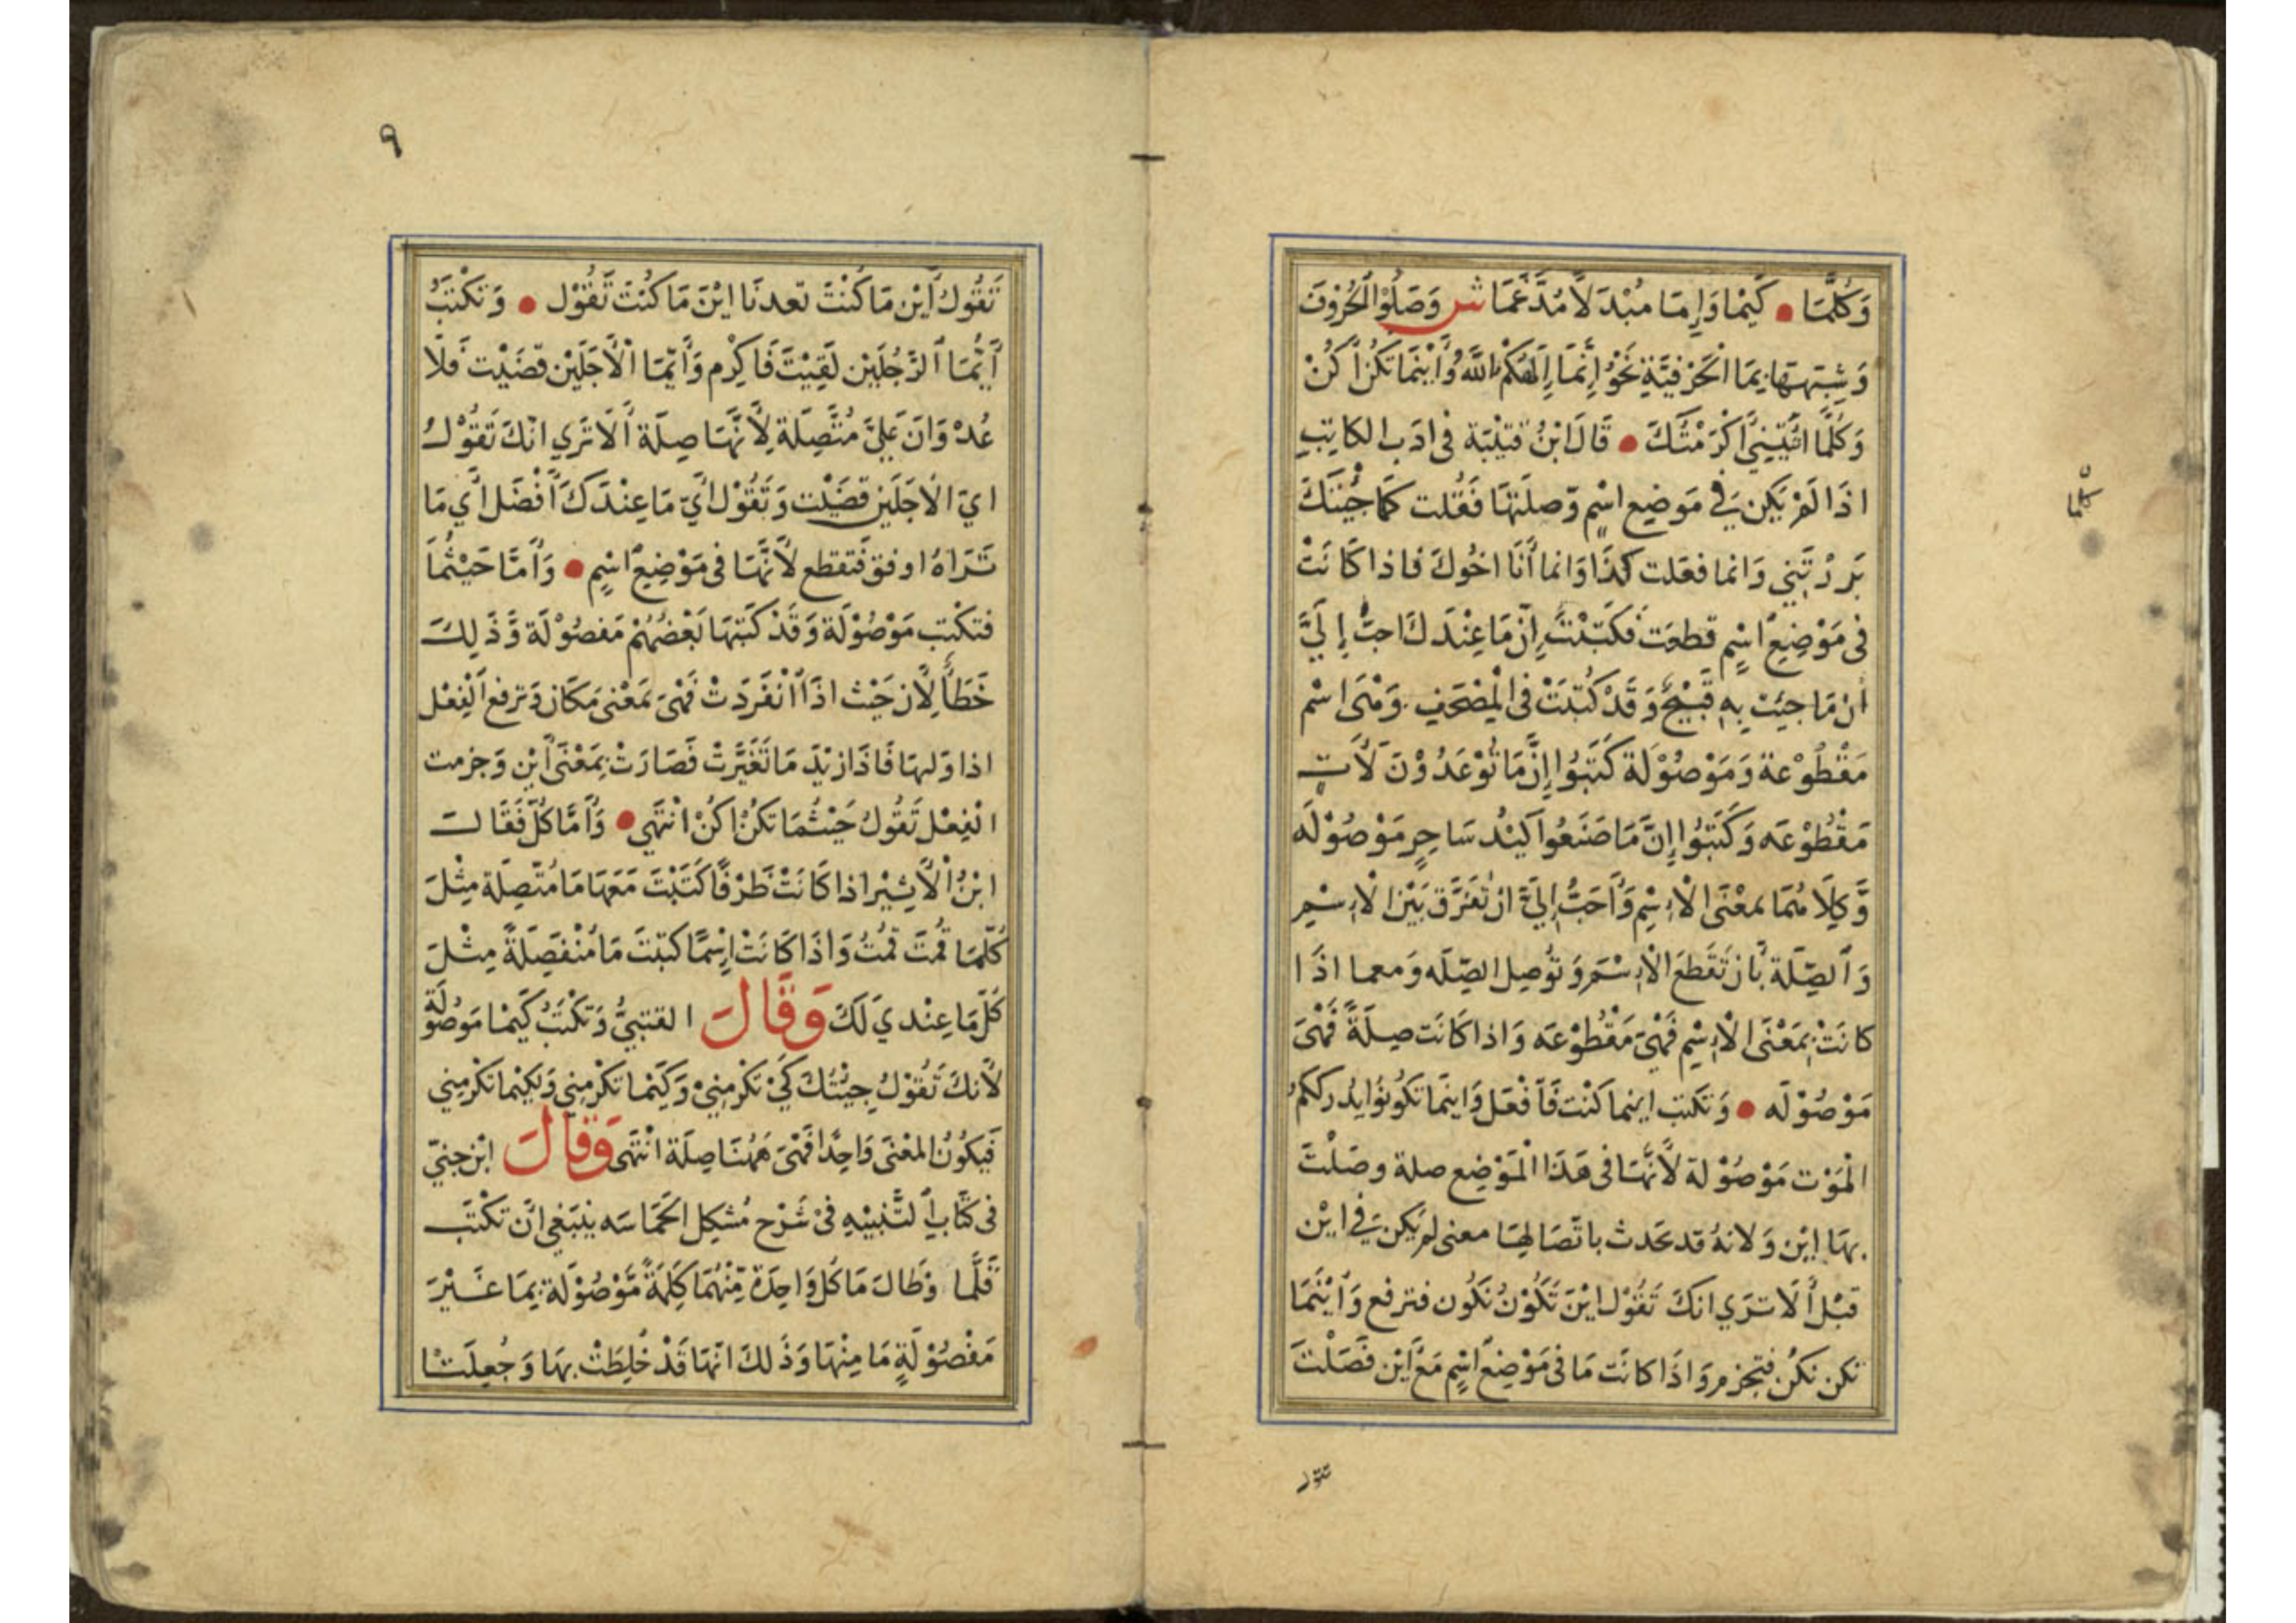 وَكُلَّمَا • كَيْمَا وَاِمَا مُبْدَلًا مُدَّغَمًا ش وَصَلُوْا الْحُرُوْفَ
وَشِبْهَهَا بِمَا الْحَرْفِيَّةِ نَحْوُ إِنَّمَا إِلَهُكُمْ اللَّهُ وَأَيْنَمَا تَكُنْ أَكُنْ
وَكُلَّمَا اَتَيْتَنِيْ أَكْرَمْتُكَ • قَالَ ابْنُ قتَيْبَة فى ادَبِ الكاتِبِ
اذَا لَمْ يَكُنْ فِي مَوضِعِ اسْمٍ وَصلَتهَا فَقُلت كَمَا جِئْتَكَ
بَرَرْتَنِي وَانما فعَلت كَذَا وَانما أَنَا اخُوكَ فاذا كَانَتْ
فى مَوْضِعِ اسْمٍ قطعَت فَكَتَبْتَ إِنْ مَا عِنْدَكَ احبُّ إِلَيَّ
أن مَا جئت بِهِ قَبِيْحٌ وَقَدْ كُتِبَتْ فِي الْمِصْحَفِ وَهْىَ اسْم
مَقْطُوْعة وَمَوْصُوْلَة كَتَبُوا إِنَّ مَا تُوْعَدُوْنَ لَأَتٍ
مَقْطُوْعَه وَكَتَبُوا إِنَّ مَا صَنَعُوا كَيْدُ سَاحِرٍ مَوْصُوْلَه
وَكِلَاهُمَا بمعْنَى الْاِسْمِ وَأَحَبُّ إِلَيَّ ان تُفَرَّقَ بَيْنَ الْاِسْمِ
وَالصِّلَة بِأَن تَقَطَعَ الْاِسْمَ وَتُوصِل الصِّلَه وَمعما اذَا
كانَتْ بِمَعْنَى الْاِسْمِ فَهْىَ مَقْطُوْعَه وَاذا كَانَت صِلَةً فَهْىَ
مَوْصُوْلَه • وَتكتب اينما كُنْت فَأَفْعَل وَاينَمَا تكُونُوْا يُدْركْكمُ
الْمَوْت مَوْصُوْلة لأَنَّهَا فى هَذَا الْمَوْضِع صلة وصَلْتَ
بهَا اين وَلانهُ قد يحَدث باتّصَالِهَا معنى لم يَكن فِي ايْن
قَبْلُ أَلَا تَرَي انكَ تَقُوْل ايْنَ تَكُوْنُ نَكُون فترفع وَأَيْنَمَا
تكن نكُنْ فتجزم وَاذَا كانَت مَا فى مَوْضِع اسْمٍ مَعَ أَيْن فَصَلْتَ
تقول
كلما
٩
تَقُوْلُ أَيْن مَا كُنْتَ تَعدنَا ايْنَ مَا كُنْتَ تَقُوْل • وَتكْتبُ
أَيُّمَا الرَّجُلَيْن لَقِيْتَ فَاكرِم وَأَيّمَا الْأَجَلَيْن قضَيْت فَلَا
عُدْوَانَ عَلَيَّ مُتَّصِلَة لِأَنَّهَا صِلَة أَلَا تَرَي انّكَ تَقُوْلُ
ايّ الاَجَلَين قضَيْت وَتَقُوْل أَيّ مَا عِنْدَكَ أَفْضَل أَي مَا
تَرَاهُ اوفق فَتقطع لِأَنَّهَا فى مَوْضِعِ اسْمٍ • وَأَمَّا حَيْثُمَا
فتكْتب مَوْصُوْلَة وَقَدْ كَتَبهَا بَعْضُهُمْ مَفصُوْلَة وَذَلِكَ
خَطَأٌ لِأَن حَيْث اذَا انْفَرَدَتْ فَهْىَ بمَعْنى مَكَان وَترفع الْفِعْل
اذا وَليهَا فَاذَا زيْدَ مَا تَغَيَّرَتْ فَصَارَتْ بِمَعْنَى أَيْن وَجزمت
الْفِعْل تَقُوْلُ حَيْثُمَا تكُنْ اكُنْ انْتَهَي • وَأَمَّا كُلّ فَقَالَ
ابْنُ الْأَثِيْر اذا كَانَتْ ظَرْفًا كَتَبْتَ مَعَهَا مَا مُتّصِلَة مِثْلَ
كُلّمَا قُمْتَ قمْتُ وَاذَا كَانَتْ اِسْمًا كتَبْتَ مَا مُنْفَصِلَةً مِثْلَ
كُلّ مَا عِنْدي لَكَ وَقَالَ القتبيُّ وَتكْتبُ كَيْمَا مَوْصُوْلَة
لأَنكَ تَقُوْلُ جِئْتُكَ كَيْ تكْرمنِيْ وَكَيْمَا تكْرمنِي وَلكيْمَا تكْرمنِي
فَيكُوْنُ المعْنَى وَاحِدًا فَهْىَ هَهُنَا صِلَة انْتَهَى وَقَالَ ابْن جنِيّ
فى كتَابِ التَّنْبِيْهِ فىْ شَرْح مُشكِل الْحَمَاسَه ينبَغِي انْ تكْتَب
قَلَّمَا وَطَالَ مَا كُل وَاحِدَة مِّنْهُمَا كَلِمَةً مَّوْصُوْلَة بِمَا غَيْرَ
مَفْصُوْلَةٍ مَا مِنْهَا وَذَلكَ انّهَا قَدْ خُلِطَتْ بهَا وَجُعِلَتَا